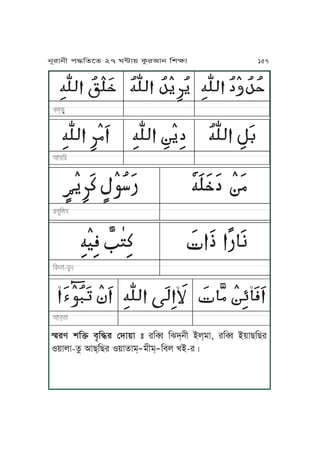 নূরানী পদ্ধতিতে ২৭ ঘন্টায় কুরআন শিক্ষা ১৫৭
حُدُوْدُ اللهِ يُرِيْدُ اللهُ خَلْقُ اللهِ
بَلِ اللهُ دِيْنِ اللهِ اَمْرِ اللهِ
مَنْ دَخَلَهٗ رَسُوْلٍ كَرِيْمٍ
نَارًا ذَاتَ كِتٰبٌ فِيْهِ
اَفَائِنْ مَّاتَ لَاِالَى اللهِ اَنْ تَبُوْٓءَا
স্মরণ শক্তি বৃদ্ধির দোয়া ঃ রব্বি ঝিদ্‌নী ইল্‌মা, রব্বি ইয়াছ্‌ছির
ওয়ালা-তু আছ্‌ছির ওয়াতাম্‌-মীম্‌-বিল খই-র।